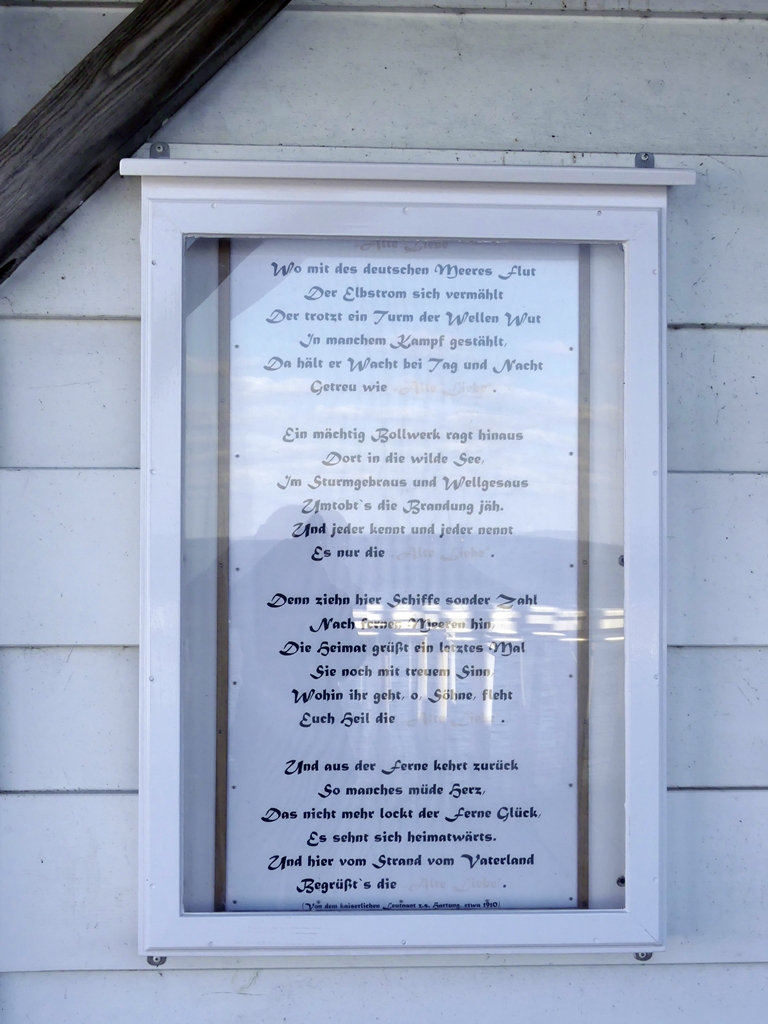 "Alte Liebe"
Wo mit des deutschen Meeres Flut
Der Elbstrom sich vermählt
Der trotzt ein Turm der Wellen Wut
In manchem Kampf gestählt,
Da hält er Wacht bei Tag und Nacht
Getreu wie „Alte Liebe".
Ein mächtig Bollwerk ragt hinaus
Dort in die wilde See,
Im Sturmgebraus und Wellgesaus
Umtobt`s die Brandung jäh.
Und jeder kennt und jeder nennt
Es nur die „Alte Liebe".
Denn ziehn hier Schiffe sonder Zahl
Nach fernen Meeren hin,
Die Heimat grüßt ein letztes Mal
Sie noch mit treuem Sinn,
Wohin ihr geht, o, Söhne, fleht
Euch Heil die „Alte Liebe".
Und aus der Ferne kehrt zurück
So manches müde Herz,
Das nicht mehr lockt der Ferne Glück,
Es sehnt sich heimatwärts.
Und hier vom Strand vom Vaterland
Begrüßt`s die „Alte Liebe".
(Von dem kaiserlichen Leutnant z.s. Hartung, etwa 1910)